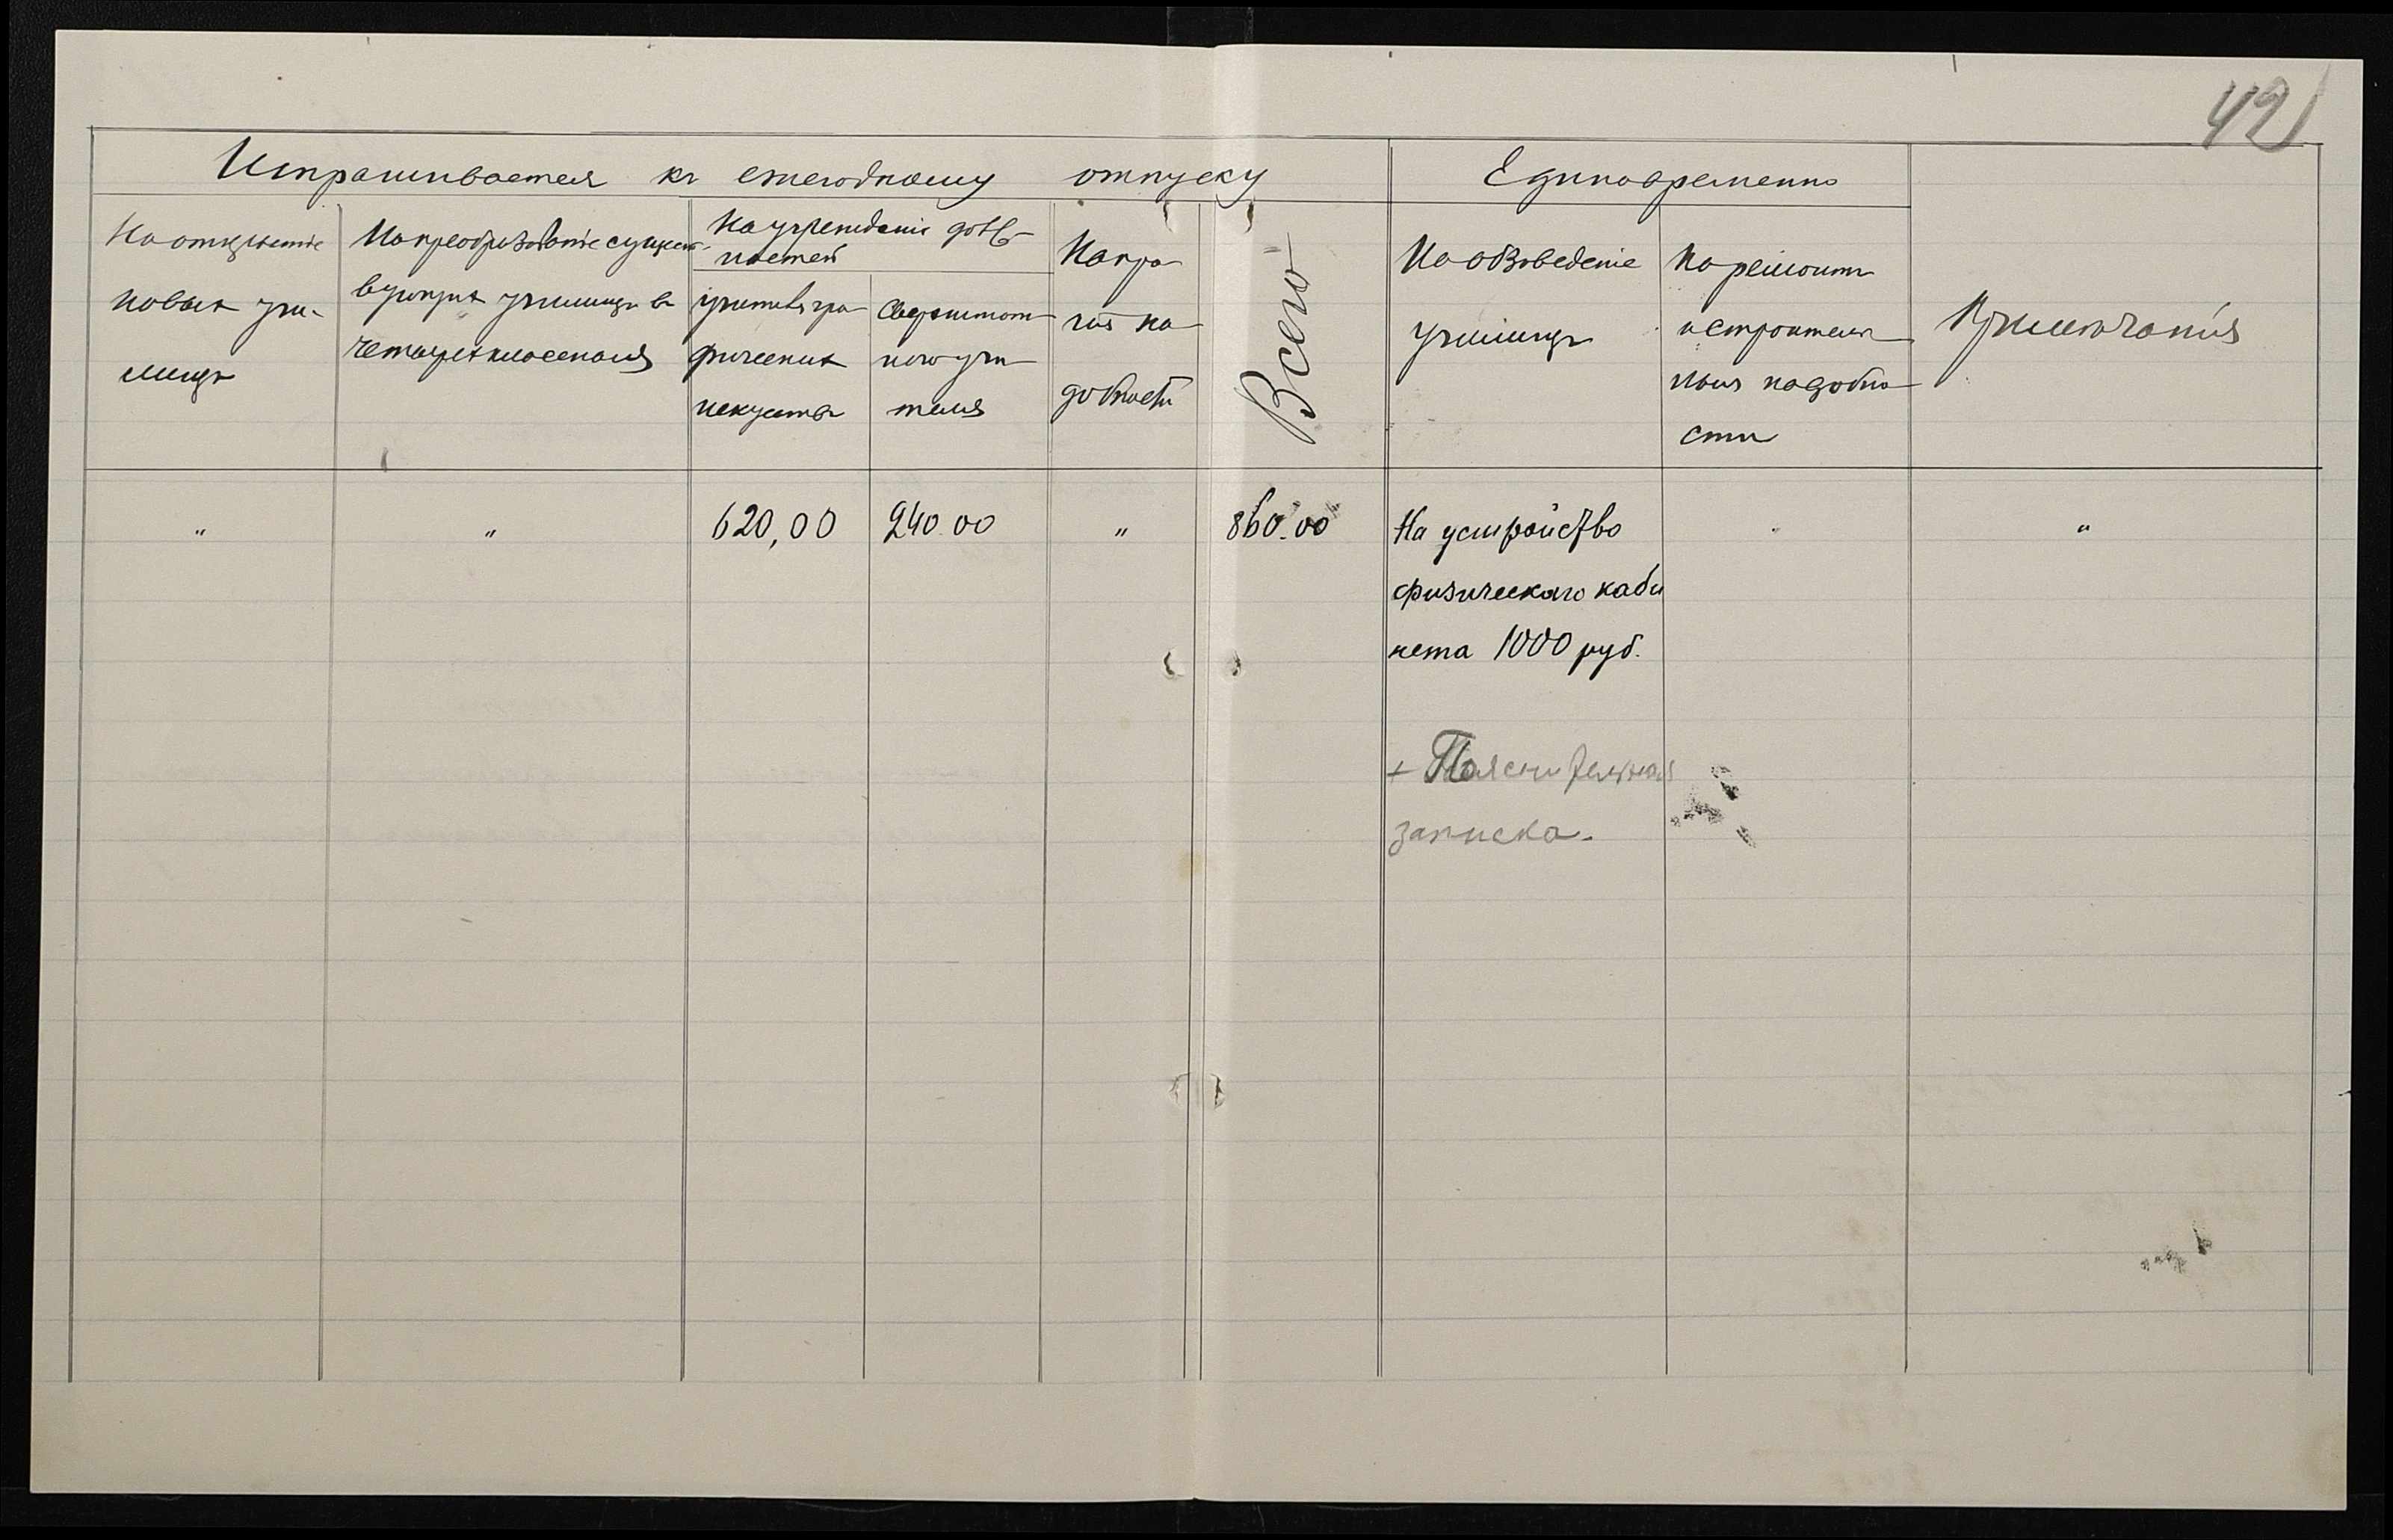 42
Испрашивается къ ежегодному отпуску
Единовременно
На открытіе
новыхъ учи-
лищъ
На преобразованіе сущест-
вующихъ училищъ въ
четырехклассныя
На учрежденіе долж-
ностей
учителя гра
фическихъ
искусствъ
сверхштат
наго учи
теля
На про
чія на
добности
Всего
На обзаведеніе
училищъ
На ремонтъ
и строитель
ныя надобно
сти
Примѣчанія
"
"
620,00
240.00
"
860.00
На устройство
физическаго каби
нета 1000 руб.
"
+ Пояснительная
записка.